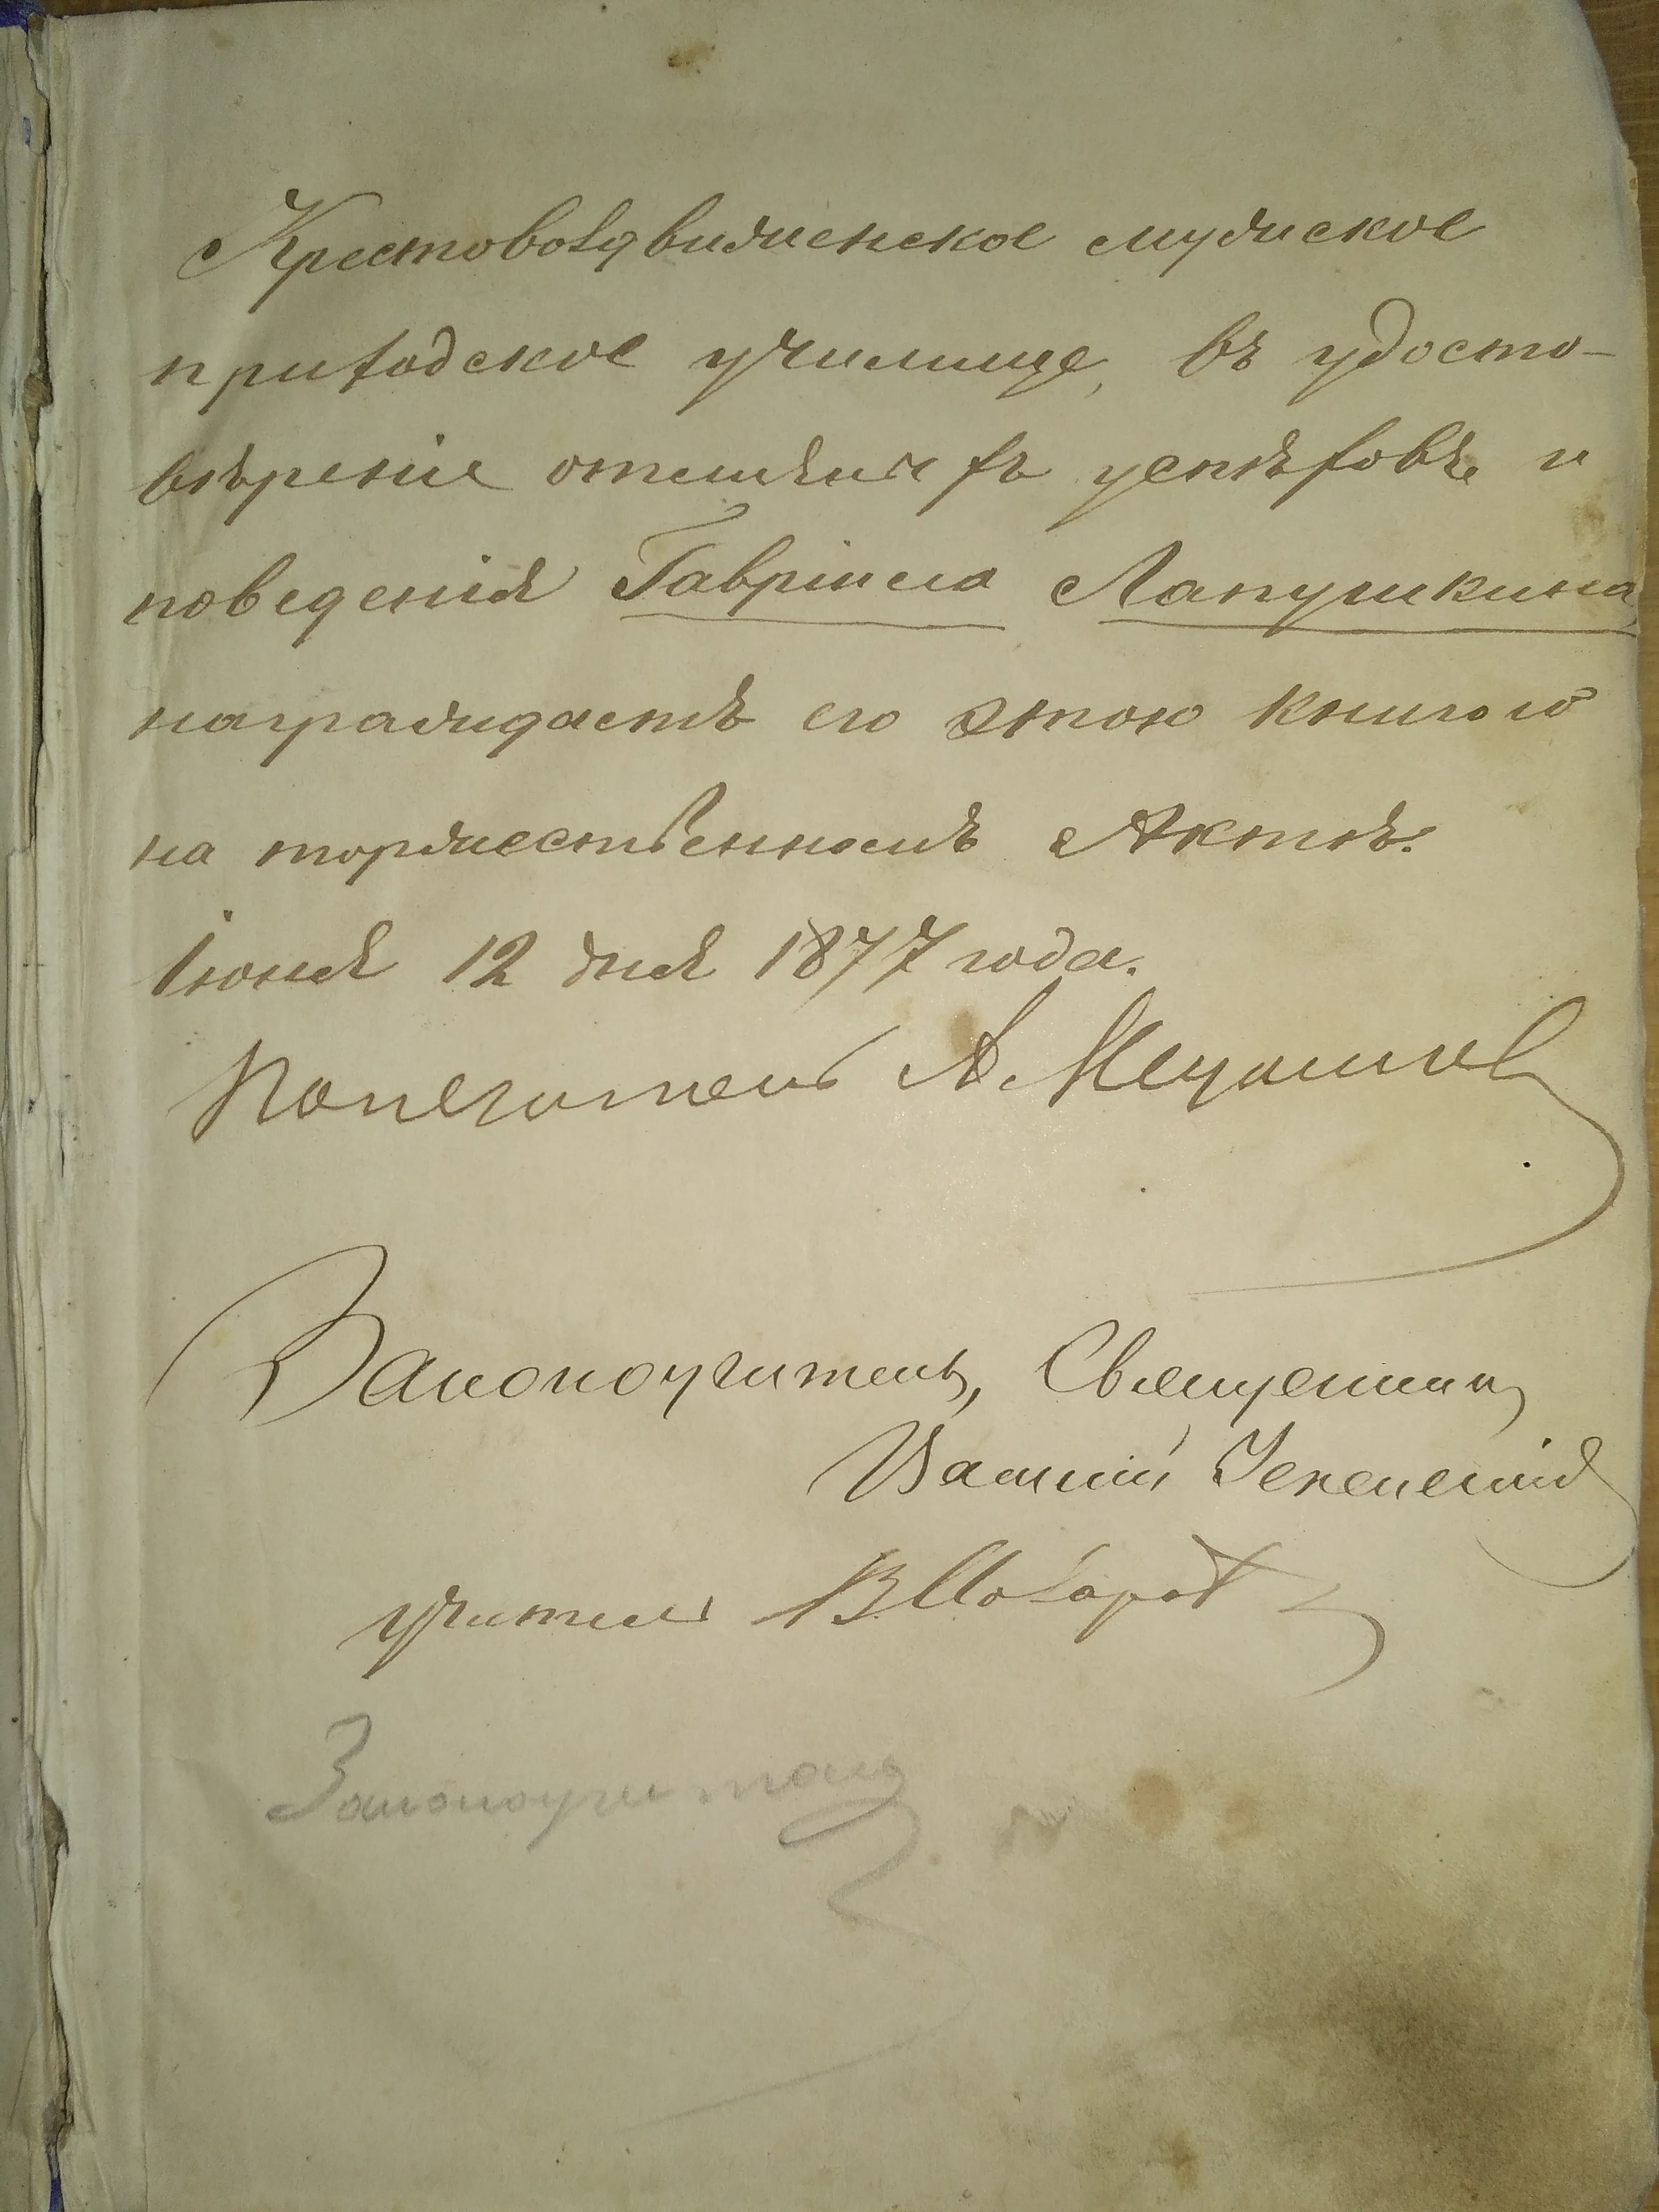 Крестовоздвиженское мужское
приходское училище, въ удосто-
вѣреніе отличныхъ успѣховъ и
поведенія Гавріила Лапушкина
награждаетъ его этою книгою
на торжественномъ Актѣ.
Іюня 12 дня 1877 года.
Попечитель А.
Законоучитель, Священникъ
Василій
учитель В
Законоучитель